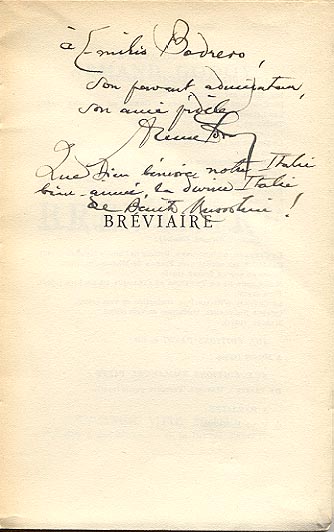 à Emilio Bodrero,
son fervent admirateur,
son ami fidèle
Que Dieu bénisse notre Italie
bien-aimée, la divine Italie
de Benito Mussolini !
BRÉVIAIRE